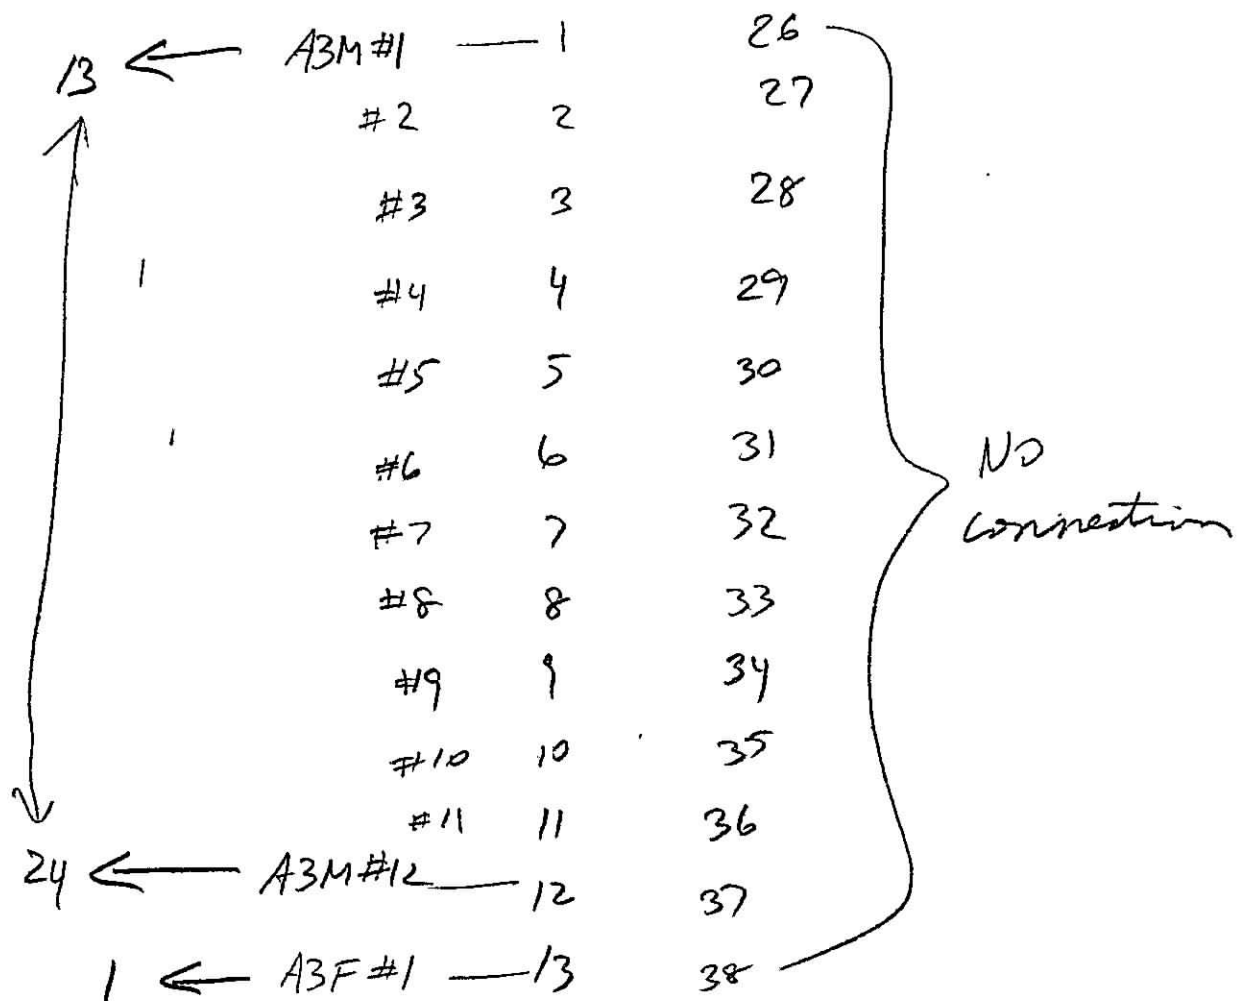 13 ← A3M #1 — 1 26
#2 2 27
#3 3 28
#4 4 29
#5 5 30
#6 6 31
#7 7 32
#8 8 33
#9 9 34
#10 10 35
#11 11 36
24 ← A3M #12 — 12 37
1 ← A3F #1 — 13 38
NO
connection